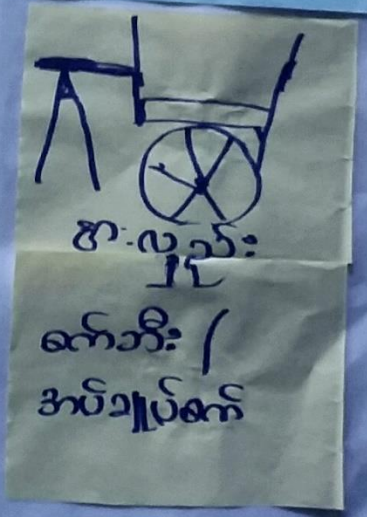 နွားလှည်း
စက်ဘီး /
အပ်ချုပ်စက်